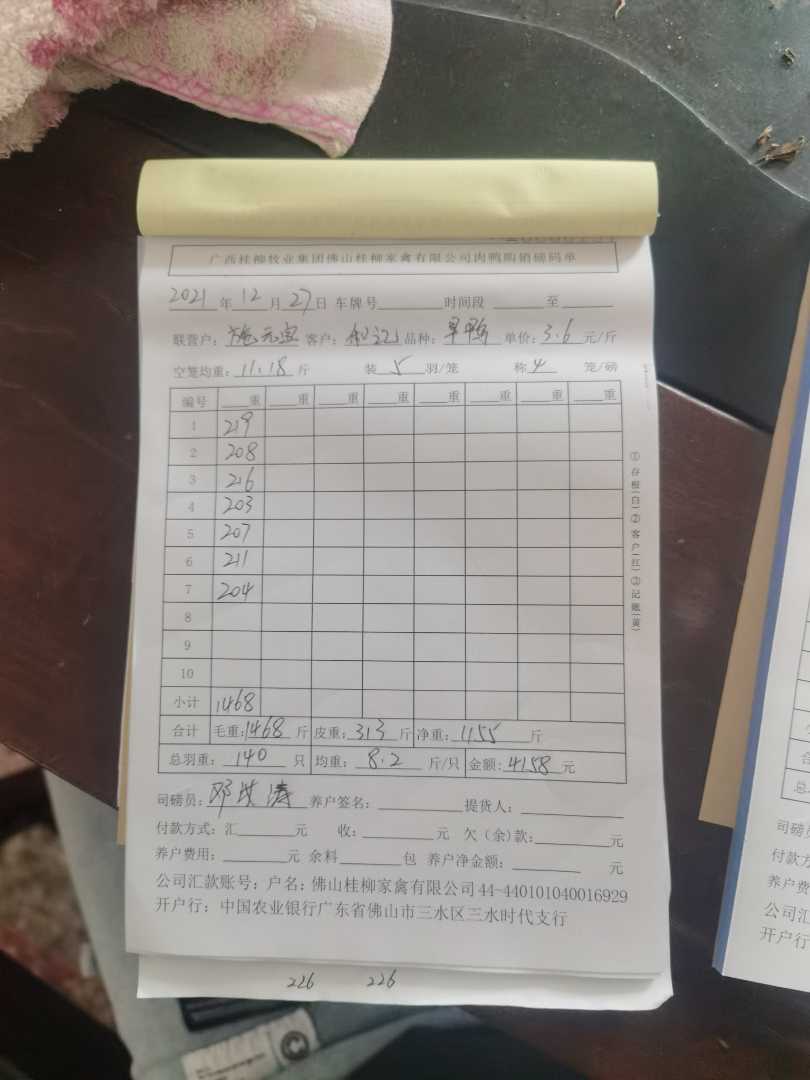 广西桂柳牧业集团佛山桂柳家禽有限公司肉鸭购销磅码单
2021年12月27日 车牌号 时间段 至
联营户: 施元宝 客户: 品种: 旱鸭 单价: 3.6 元/斤
空笼均重: 11.18 斤 装 5 羽/笼 称 4 笼/磅
编号 重 重 重 重 重 重 重 重
1 219
2 208
3 216
4 203
5 207
6 211
7 204
8
9
10
小计 1468
合计 毛重: 1468 斤 皮重: 313 斤 净重: 1155 斤
总羽重: 140 只 均重: 8.2 斤/只 金额: 4158 元
司磅员: 邓 涛 养户签名: 提货人:
付款方式: 汇 元 收: 元 欠(余)款: 元
养户费用: 元 余料 包 养户净金额: 元
公司汇款账号: 户名: 佛山桂柳家禽有限公司 44-440101040016929
开户行: 中国农业银行广东省佛山市三水区三水时代支行
①存根(白)②客户(红)③记账(黄)
226 226
司磅员
付款方
养户费
公司汇
开户行